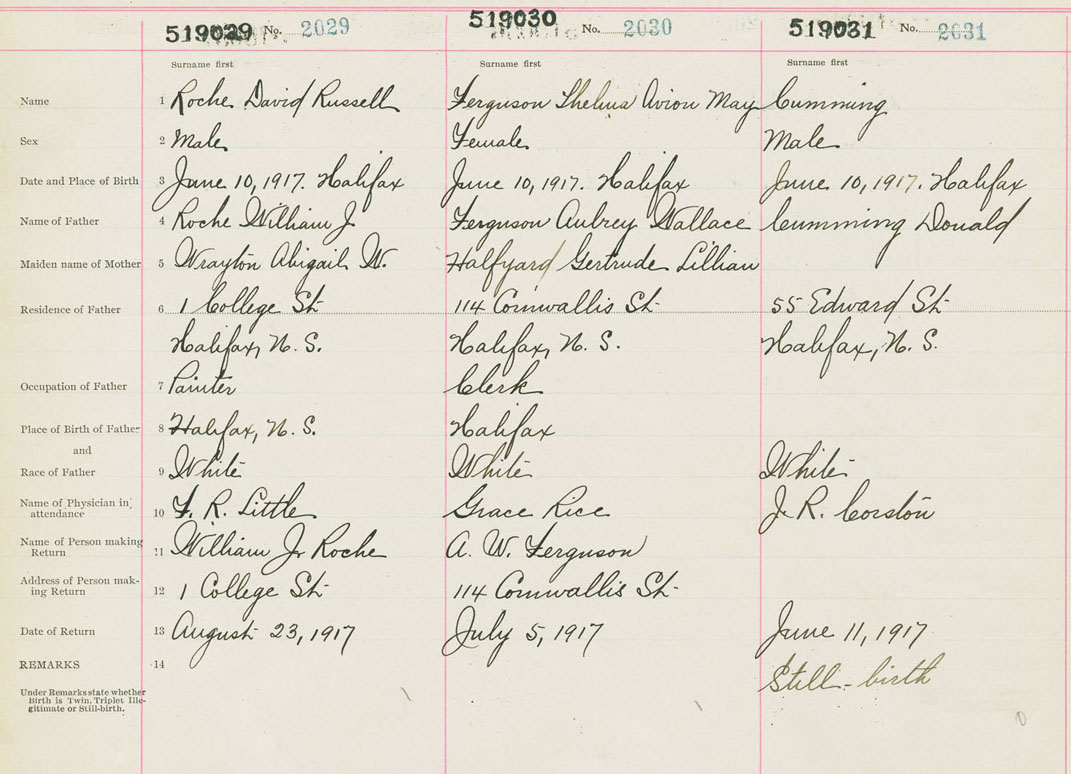 519029 No. 2029 519030 No. 2030 519031 No. 2031
Surname first Surname first Surname first
Name 1 Roche David Russell Ferguson Thelma Avion May Cumming
Sex 2 Male Female Male
Date and Place of Birth 3 June 10, 1917. Halifax June 10, 1917. Halifax June 10, 1917. Halifax
Name of Father 4 Roche William J Ferguson Aubrey Wallace Cumming Donald
Maiden name of Mother 5 Wrayton Abigail W. Halfyard Gertrude Lillian
Residence of Father 6 1 College St 114 Cornwallis St 55 Edward St
Halifax, N. S. Halifax, N. S. Halifax, N. S.
Occupation of Father 7 Painter Clerk
Place of Birth of Father 8 Halifax, N. S. Halifax
and
Race of Father 9 White White White
Name of Physician in attendance 10 F. R. Little Grace Rice J. R. Corston
Name of Person making Return 11 William J. Roche A. W. Ferguson
Address of Person mak-ing Return 12 1 College St 114 Cornwallis St
Date of Return 13 August 23, 1917 July 5, 1917 June 11, 1917
REMARKS 14 Still-birth
Under Remarks state whether
Birth is Twin, Triplet Ille-
gitimate or Still-birth.